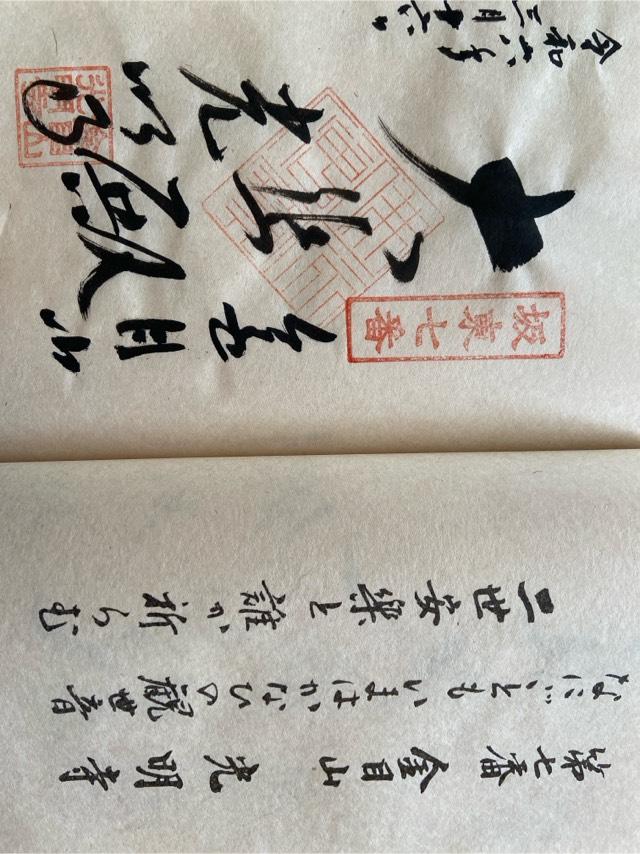 第七番 金目山 光明寺
なにごとも いまはかなひの 観世音
二世安楽と 誰か祈らむ
坂東七番
金目山
大悲殿
光明寺
令和六年
三月廿六日